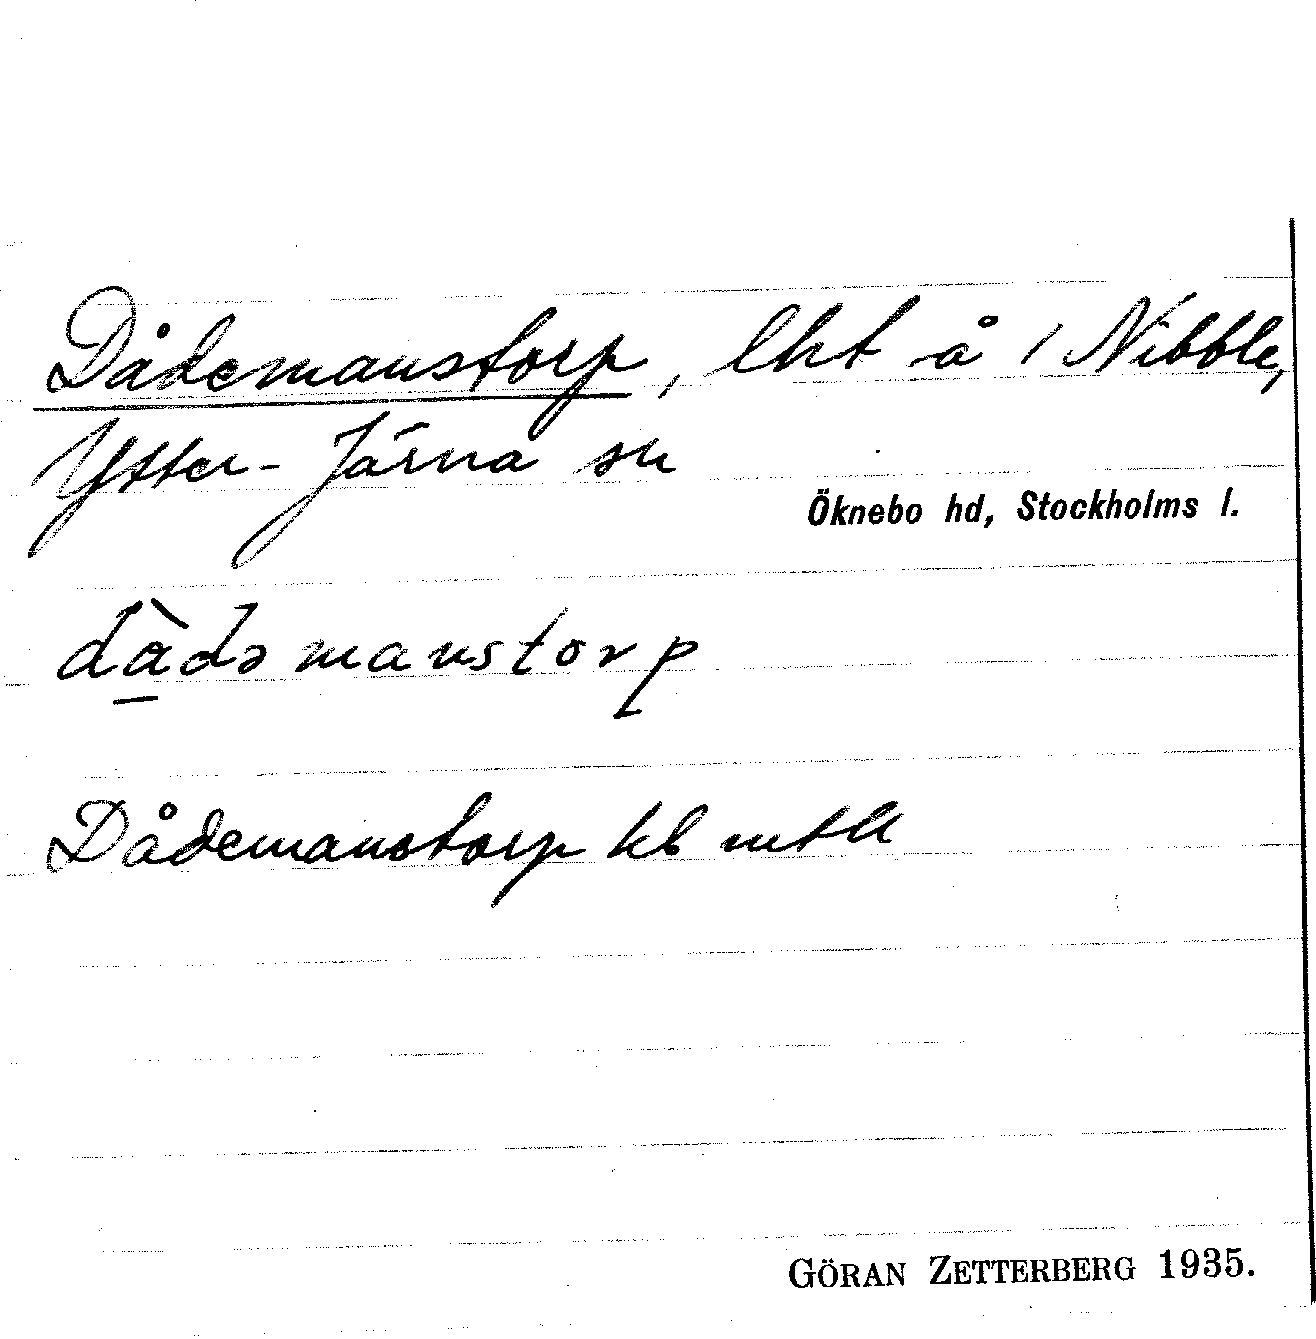 Dådemanstorp, lht å / Nibble,
Ytter-Järna sn
Öknebo hd, Stockholms l.
dàdəmanstorp
Dådemanstorp kb mtll
GÖRAN ZETTERBERG 1935.